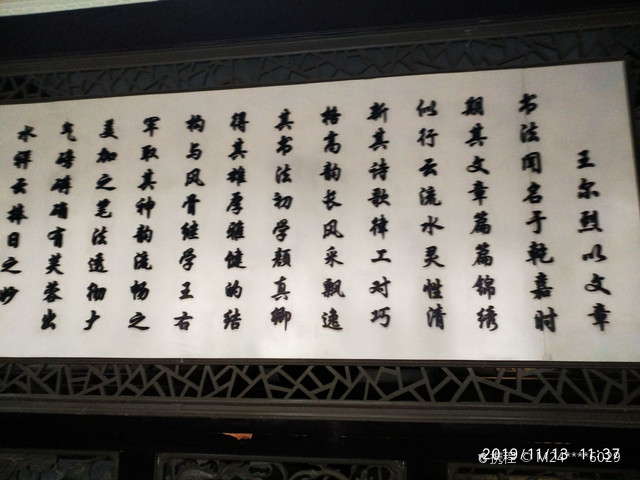 王尔烈以文章
书法闻名于乾嘉时
期其文章篇篇锦绣
似行云流水灵性清
新其诗歌律工对巧
格高韵长风采飘逸
其书法初学颜真卿
得其雄厚雅健的结
构与风骨继学王右
军取其神韵流畅之
美加之笔法透彻大
气磅礴确有芙蓉出
水祥云捧日之妙
2019/11/13 11:37
携程 © M24*****6029